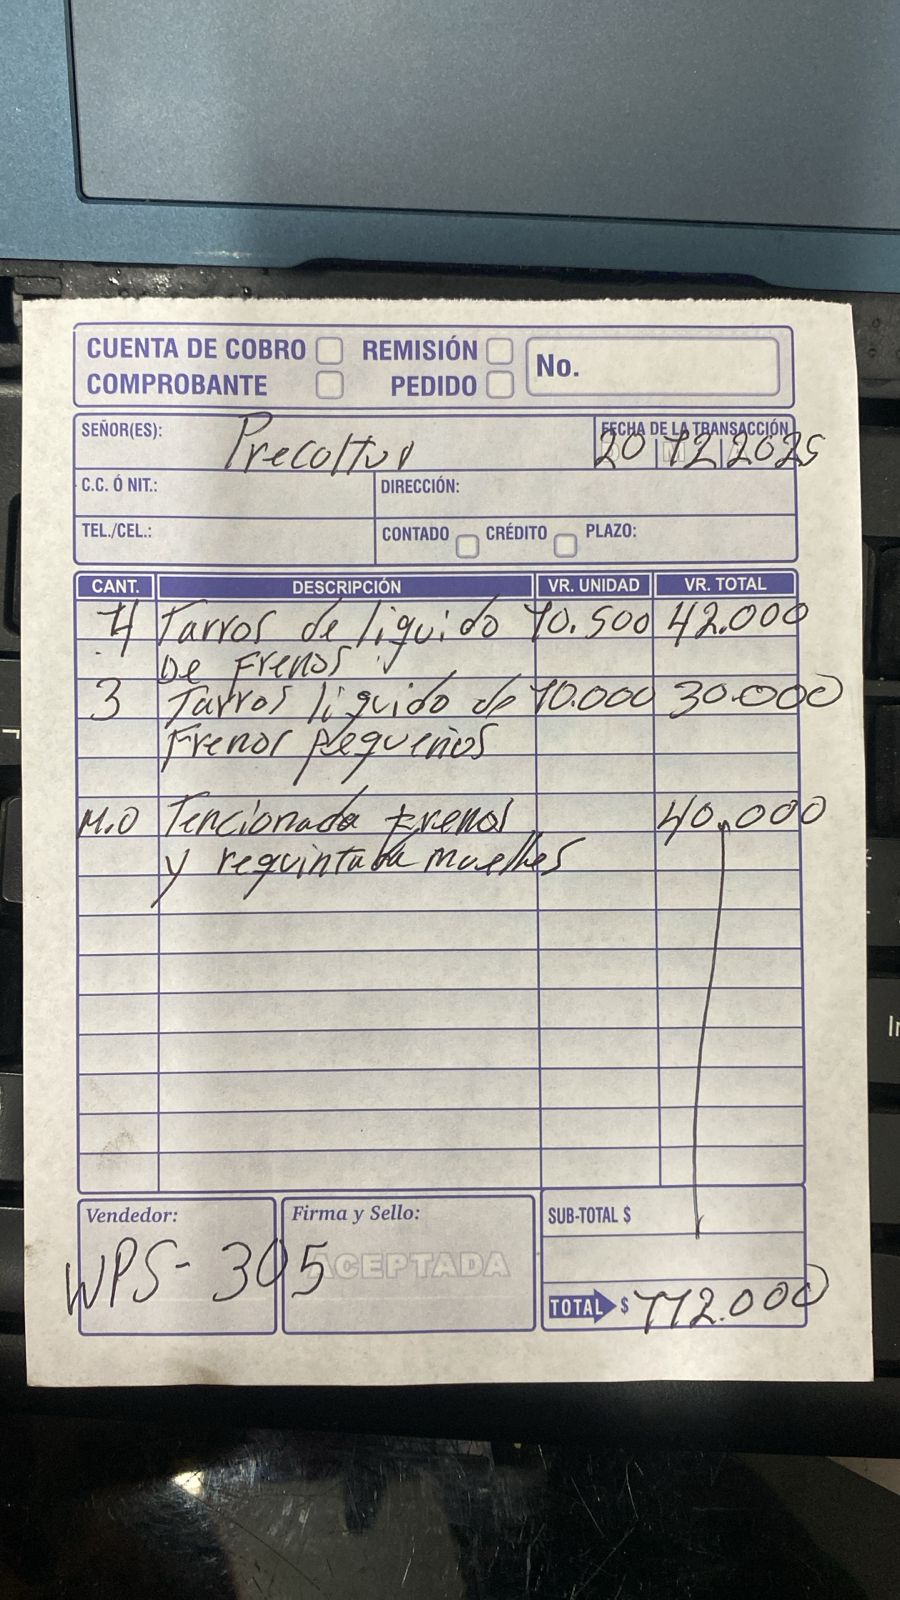 CUENTA DE COBRO REMISIÓN No.
COMPROBANTE PEDIDO
SEÑOR(ES): Precoltur FECHA DE LA TRANSACCIÓN
20 12 2025
C.C. Ó NIT.: DIRECCIÓN:
TEL./CEL.: CONTADO CRÉDITO PLAZO:
CANT. DESCRIPCIÓN VR. UNIDAD VR. TOTAL
4 Tarros de liquido 10.500 42.000
De Frenos
3 Tarros liquido de 10.000 30.000
Frenos pequeños
M.O Tencionada Frenos 40.000
y requintada muelles
Vendedor: Firma y Sello: SUB-TOTAL $
WPS-305 ACEPTADA
TOTAL $ 112.000